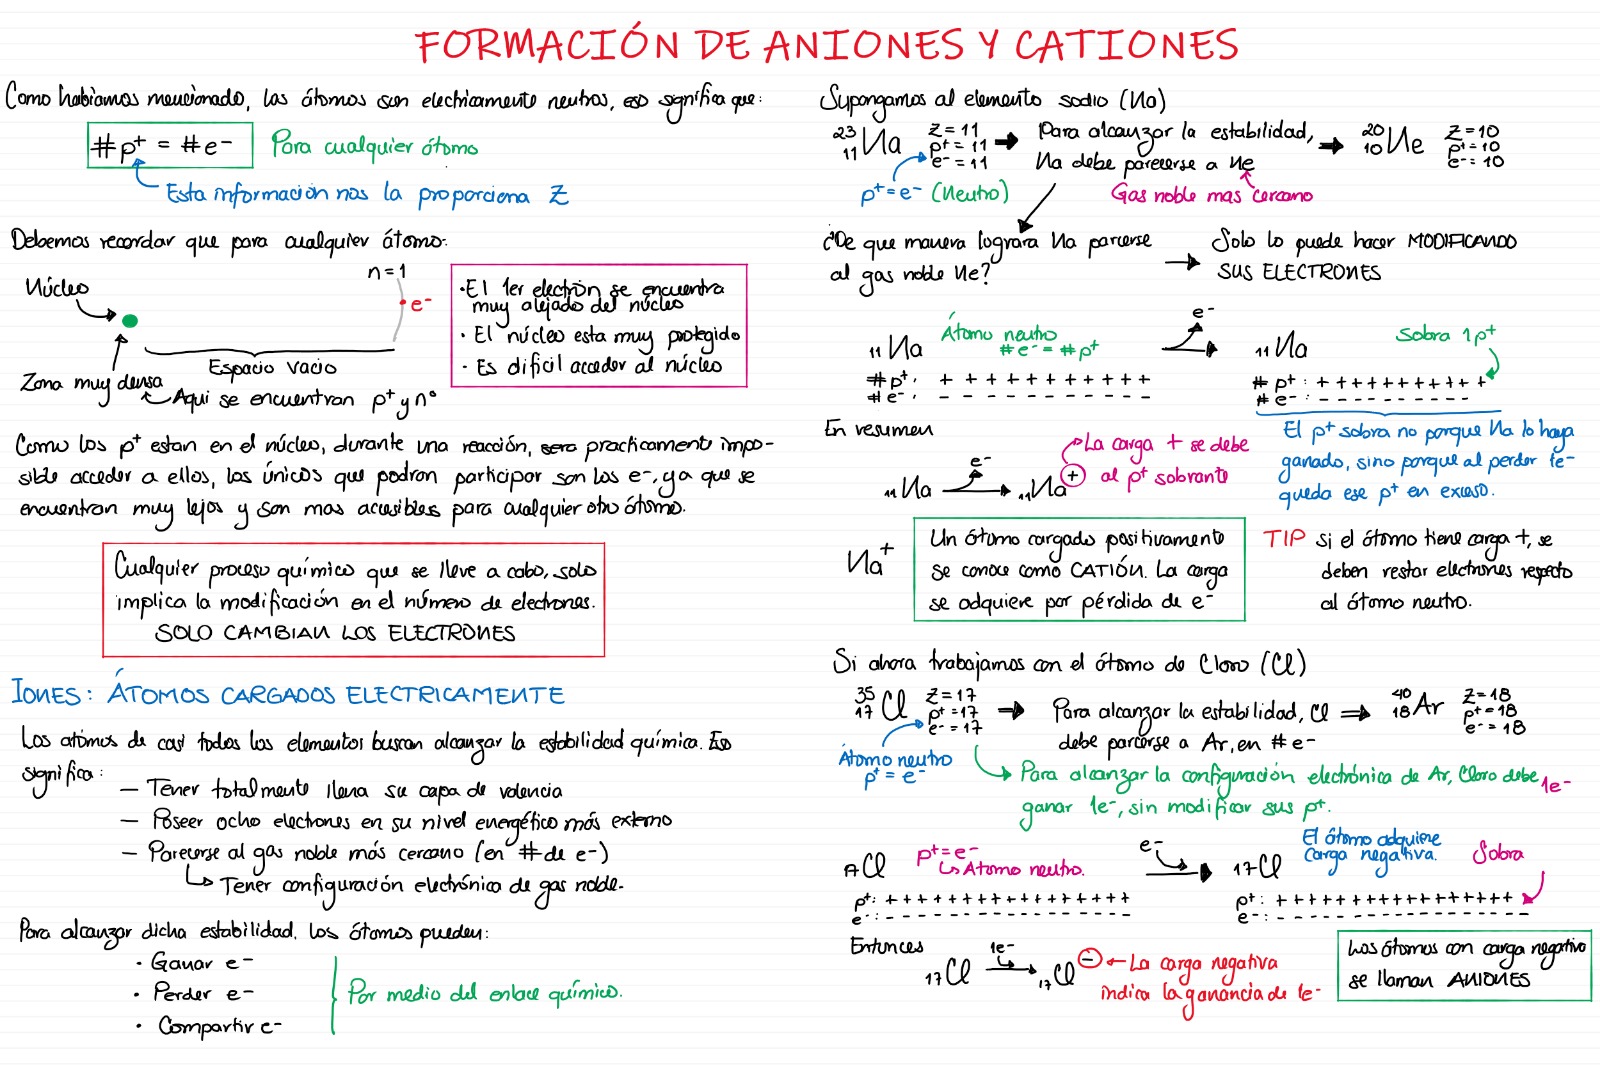 FORMACIÓN DE ANIONES Y CATIONES
Como habiamos mencionado, los átomos son electricamente neutros, eso significa que:
#p+ = #e-
Para cualquier átomo
Esta información nos la proporciona Z
Debemos recordar que para cualquier átomo:
Núcleo
n=1
e-
Espacio vacio
Zona muy densa
Aqui se encuentran p+ y n°
·El 1er electrón se encuentra
muy alejado del núcleo
· El núcleo esta muy protegido
· Es dificil acceder al núcleo
Como los p+ estan en el núcleo, durante una reacción, sera practicamente impo-
sible acceder a ellos, los únicos que podran participar son los e-, ya que se
encuentran muy lejos y son mas accesibles para cualquier otro átomo.
Cualquier proceso químico que se lleve a cabo, solo
implica la modificación en el número de electrones.
SOLO CAMBIAN LOS ELECTRONES
IONES: ÁTOMOS CARGADOS ELECTRICAMENTE
Los atomos de casi todos los elementos buscan alcanzar la estabilidad química. Eso
significa:
— Tener totalmente llena su capa de valencia
— Poseer ocho electrones en su nivel energético más externo
— Parecerse al gas noble más cercano (en # de e-)
Tener configuración electrónica de gas noble.
Para alcanzar dicha estabilidad, los átomos pueden:
· Ganar e-
· Perder e-
· Compartir e-
Por medio del enlace químico.
Supongamos al elemento sodio (Na)
23 11 Na
Z=11
p+=11
e-=11
p+=e- (Neutro)
Para alcanzar la estabilidad,
Na debe parecerse a Ne
Gas noble mas cercano
20 10 Ne
Z=10
p+=10
e-=10
¿De que manera lograra Na parcerse
al gas noble Ne?
Solo lo puede hacer MODIFICANDO
SUS ELECTRONES
11 Na
Átomo neutro
#e- = #p+
e-
11 Na
Sobra 1p+
#p+: + + + + + + + + + + +
#e-: - - - - - - - - - - -
#p+: + + + + + + + + + + +
#e-: - - - - - - - - - -
El p+ sobra no porque Na lo haya
ganado, sino porque al perder 1e-
queda ese p+ en exceso.
En resumen
11 Na
e-
11 Na+
La carga + se debe
al p+ sobrante
Na+
Un átomo cargado positivamente
se conoce como CATIÓN. La carga
se adquiere por pérdida de e-
TIP si el átomo tiene carga +, se
deben restar electrones respecto
al átomo neutro.
Si ahora trabajamos con el átomo de Cloro (Cl)
35 17 Cl
Z=17
p+=17
e-=17
Átomo neutro
p+=e-
Para alcanzar la estabilidad, Cl
debe parcerse a Ar, en #e-
40 18 Ar
Z=18
p+=18
e-=18
Para alcanzar la configuración electrónica de Ar, Cloro debe 1e-
ganar 1e-, sin modificar sus p+.
17 Cl
p+=e-
Atomo neutro.
e-
17 Cl
El átomo adquiere
carga negativa.
Sobra
p+: + + + + + + + + + + + + + + + + +
e-: - - - - - - - - - - - - - - - - -
p+: + + + + + + + + + + + + + + + + +
e-: - - - - - - - - - - - - - - - - - -
Entonces
17 Cl
1e-
17 Cl-
La carga negativa
indica la ganancia de 1e-
Los átomos con carga negativa
se llaman ANIONES